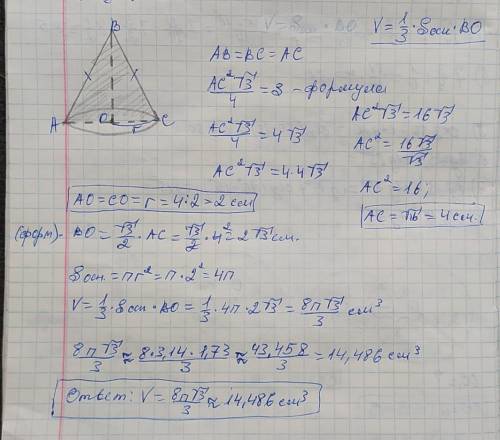 V = 1/3 · Sосн · BO
B
A
O
C
r
AB = BC = AC
AC²√3/4 = S - формула
AC²√3/4 = 4√3
AC²√3 = 4·4√3
AC²√3 = 16√3
AC² = 16√3/√3
AC² = 16;
AC = √16 = 4 см.
AO = CO = r = 4:2 = 2 см
(форм) - BO = √3/2 · AC = √3/2 · 4 = 2√3 см.
Sосн. = πr² = π·2² = 4π
V = 1/3 · Sосн · BO = 1/3 · 4π · 2√3 = 8π√3/3 см³
8π√3/3 ≈ 8·3,14·1,73/3 ≈ 43,458/3 = 14,486 см³
Ответ: V = 8π√3/3 ≈ 14,486 см³